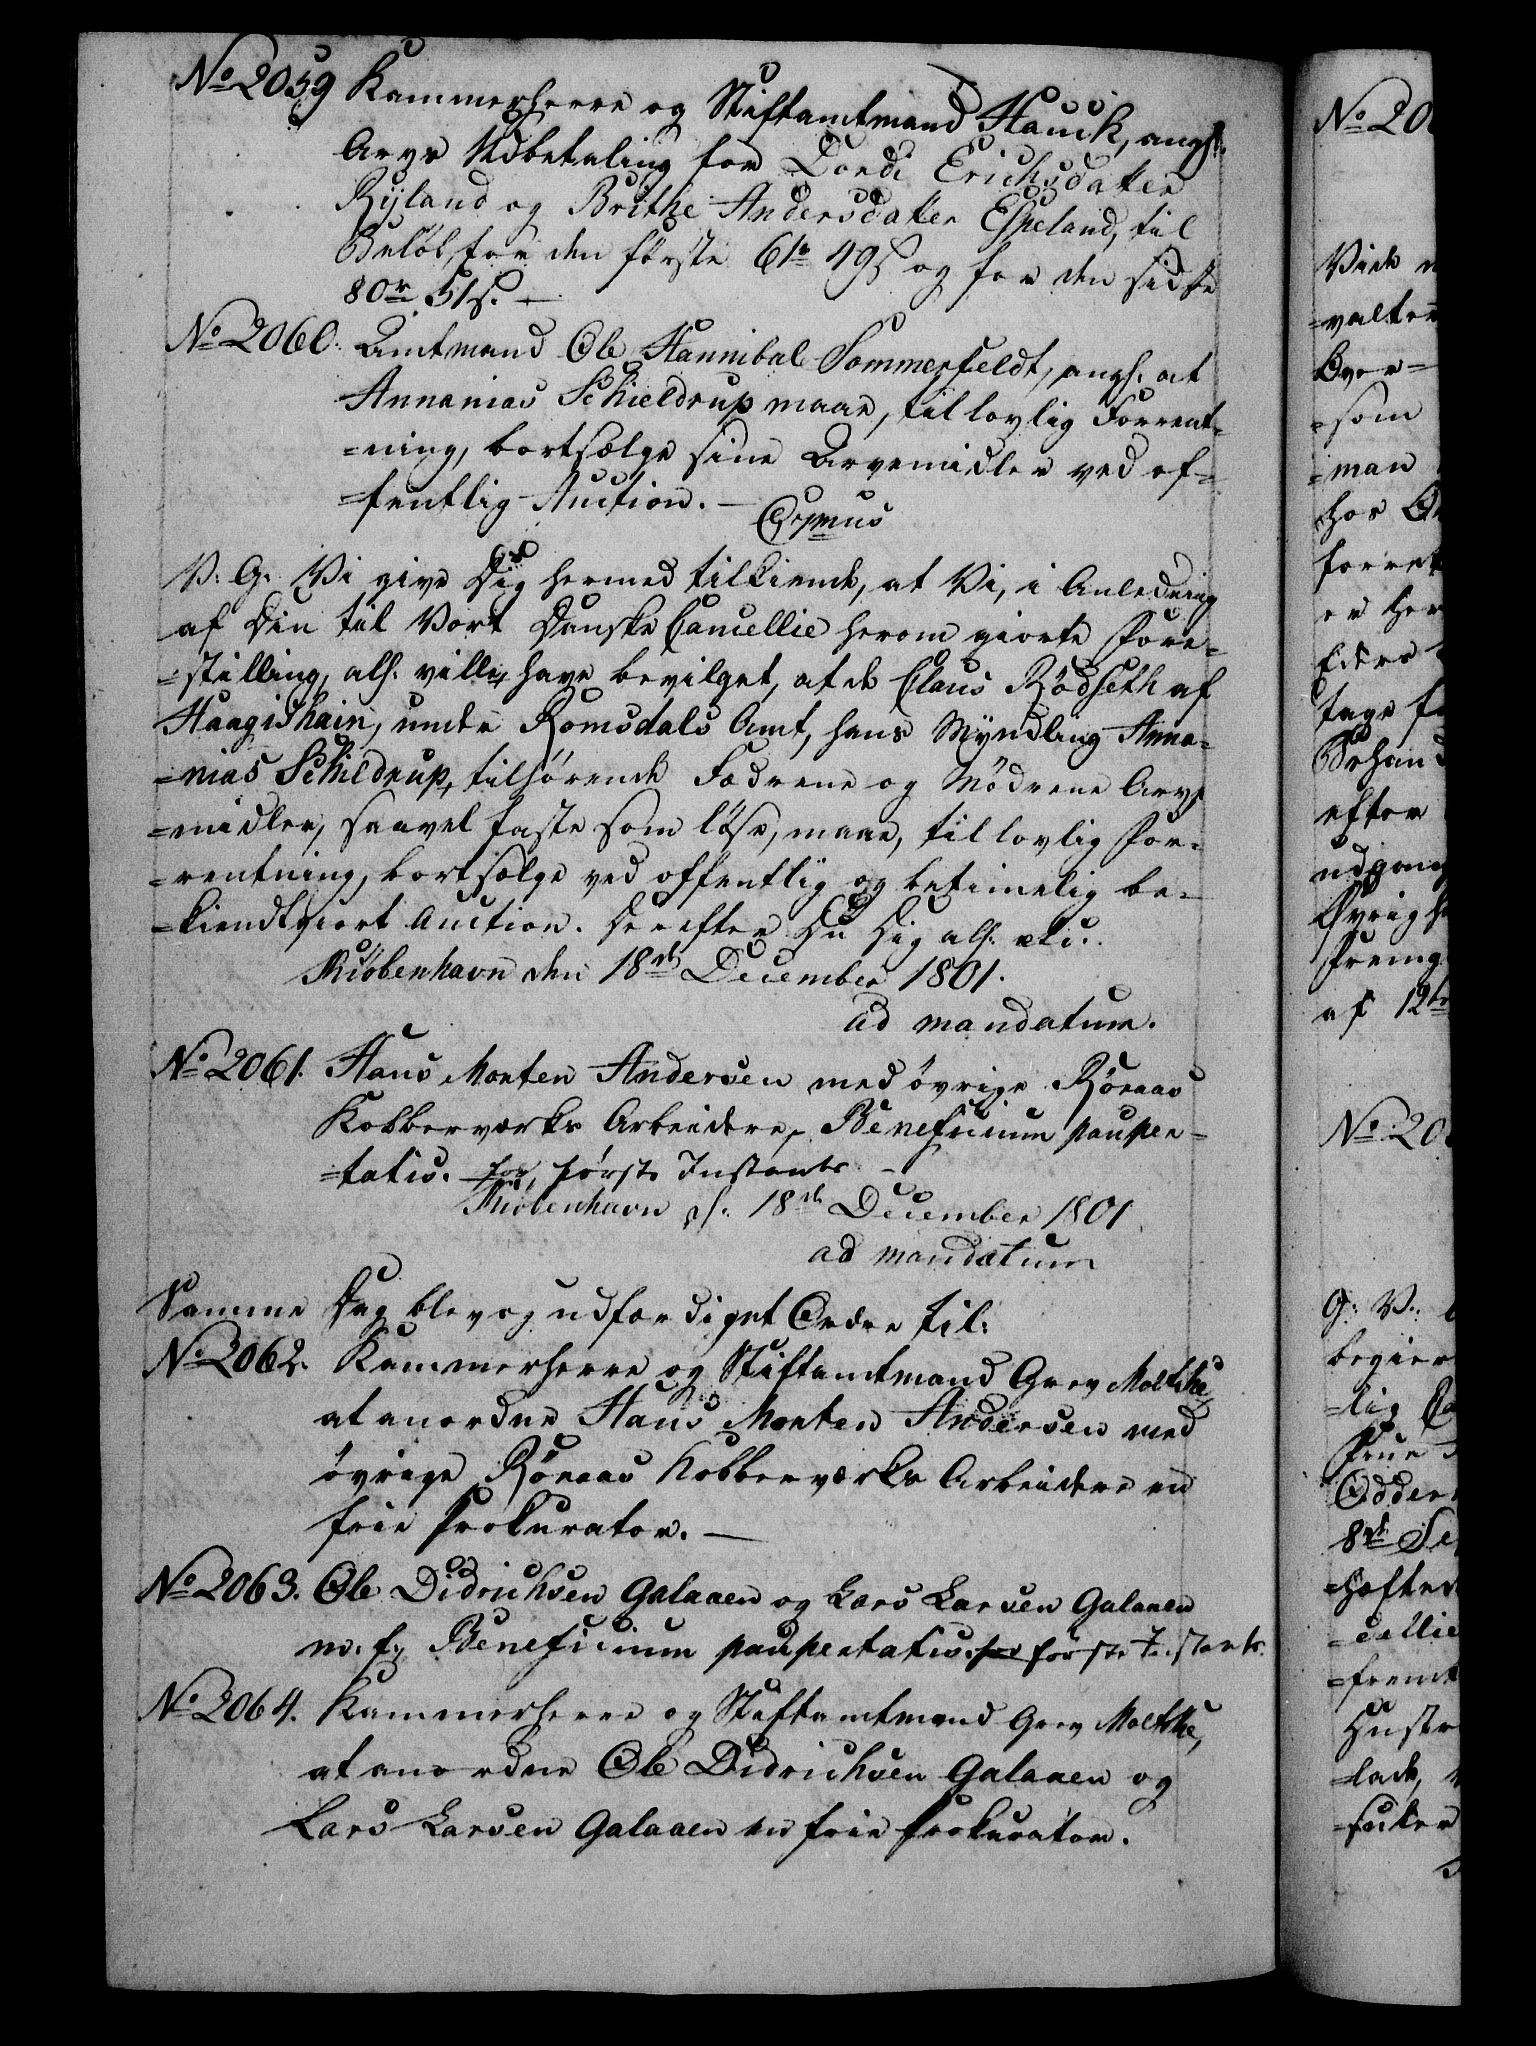 No 2059 Kammerherre og Stiftamtmand Hauch, angl:
Arvs Udbetaling for Dordi Erichsdatter
Ryland og Brithe Andersdatter Espeland, til
Beløb, for den første 61r 49s og for den sidste
80r 51s. —
No 2060. Amtmand Ole Hannibal Sommerfeldt, angl. at
Annanias Schieldrup maae, til lovlig Forrent-
=ning, bortsælge sine Arvemidler ved of-
=fentlig Auction. —
Cs 7mus
V: G: Vi give Dig hermed tilkiende, at Vi, i Anledning
af Din til Vort Danske Cancellie herom giorte Fore-
=stilling, alf. ville have bevilget, at de Claus Rødseth af
Haagishain, under Romsdals Amt, hans Myndling Anna-
=nias Schieldrup, tilhørende Fædrene og Mødrene Arve
=midler, saavel faste som løse, maae, til lovlig For-
=rentning, bortsælge ved offentlig og betimelig be-
=kiendtgiort Auction. Derefter Du Dig alf. etc.
Kiøbenhavn den 18de December 1801.
ad mandatum.
No 2061. Hans Morten Andersen med øvrige Röraas
Kobberværks Arbeidere, Beneficium pauper-
=tatis. for første Instants —
Kiøbenhavn d. 18de December 1801
ad mandatum
Samme Dag blev og udfærdiget Ordre til:
No 2062. Kammerherre og Stiftamtmand Grev Moltke,
at anordne Hans Morten Andersen med
øvrige Röraas Kobberværks Arbeidere en
frie Prokurator. —
No 2063. Ole Didrichsen Galaaen og Lars Larsen Galaaen
m: fl: Beneficium paupertatis. for første Instants.
No 2064. Kammerherre og Stiftamtmand Grev Moltke,
at anordne Ole Didrichsen Galaaen og
Lars Larsen Galaaen en frie Prokurator.
No 20
Vide
=valter
Over=
=som
=man
hos
forret
er her
Eders
tage
Behand
efter
udgang
Øvrigh
Freng
af 12te
No 20
G: V:
begier
=lig
Frue
Odder
8de Se
=hæfter
=cellie
=fremt
Hustr
=lade,